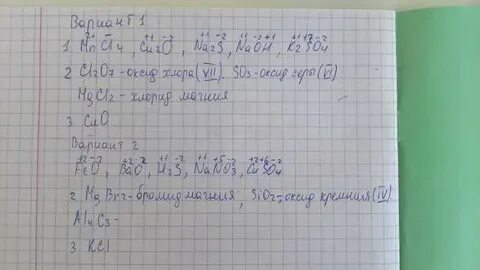 Вариант 1
1 MnCl4, Cu2O, Na2S, NaOH, K2SO4
2 Cl2O7-оксид хлора(VII), SO3-оксид серы(VI)
MgCl2-хлорид магния
3 CuO
Вариант 2
FeO, BaO, H2S, NaNO3, CuSO4
2 MgBr2-бромид магния, SiO2-оксид кремния(IV)
Al4C3-
3 KCl